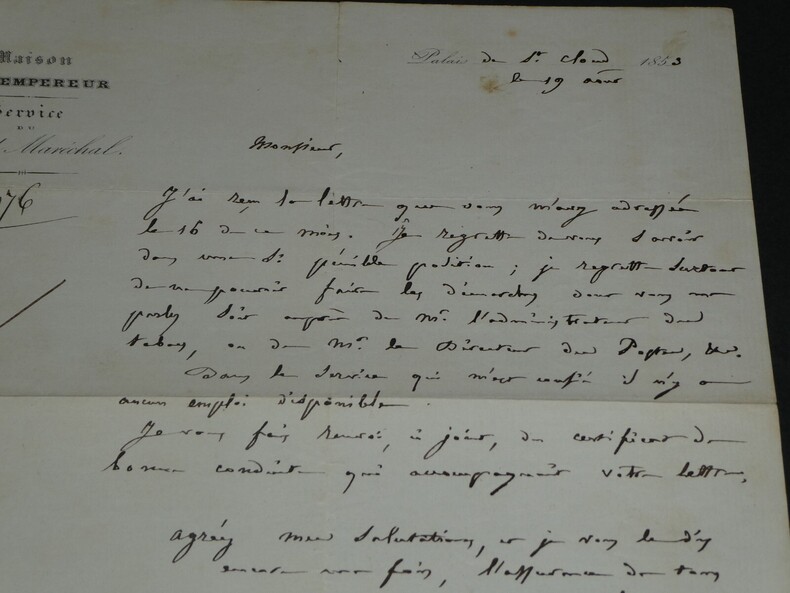 Maison
EMPEREUR
Service
DU
Maréchal.
76
Palais de St. Cloud 1853
le 19 août
Monsieur,
J'ai reçu la lettre que vous m'avez adressée
le 16 de ce mois. Je regrette de vous savoir
dans une si pénible position; je regrette surtout
de ne pouvoir faire les démarches dont vous me
parlez soit auprès de Mr. l'administrateur des
tabacs, ou de Mr. le Directeur des Postes, &c.
Dans le service qui m'est confié il n'y a
aucun emploi disponible
Je vous fais renvoi, ci joint, du certificat de
bonne conduite qui accompagnait votre lettre,
agréez mes salutations, et je vous le dis
encore une fois, l'assurance de tous